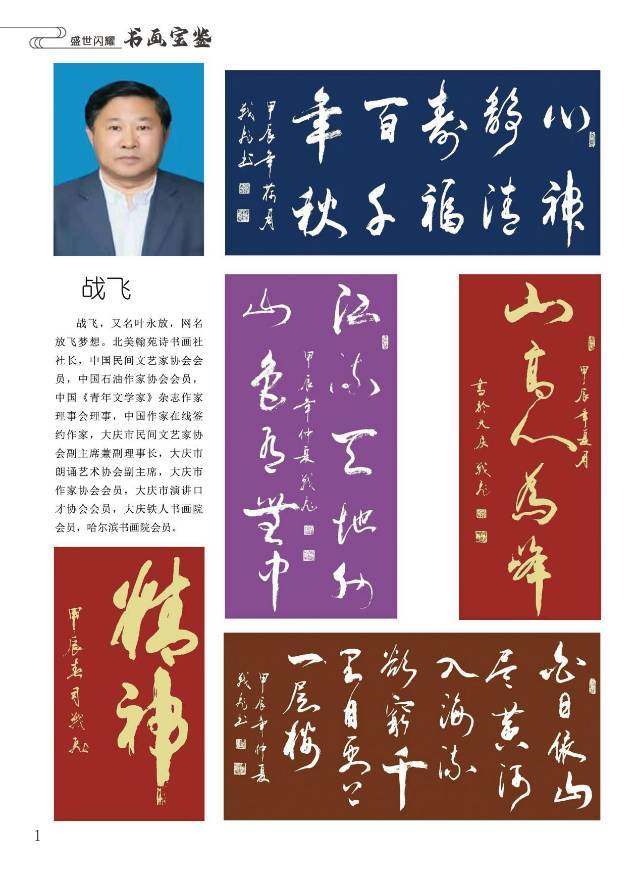 盛世闪耀 书画宝鉴
心神
静清
寿福
百千
年秋
甲辰年荷月
战飞书
战飞
战飞，又名叶永放，网名
放飞梦想。北美翰苑诗书画社
社长，中国民间文艺家协会会
员，中国石油作家协会会员，
中国《青年文学家》杂志作家
理事会理事，中国作家在线签
约作家，大庆市民间文艺家协
会副主席兼副理事长，大庆市
朗诵艺术协会副主席，大庆市
作家协会会员，大庆市演讲口
才协会会员，大庆铁人书画院
会员，哈尔滨书画院会员。
江流天地外
山色有无中
甲辰年仲夏战飞
山高人为峰
甲辰年夏月
书于大庆战飞
精神
甲辰春月战飞
白日依山
尽黄河
入海流
欲穷千
里目更上
一层楼
甲辰年仲夏
战飞书
1